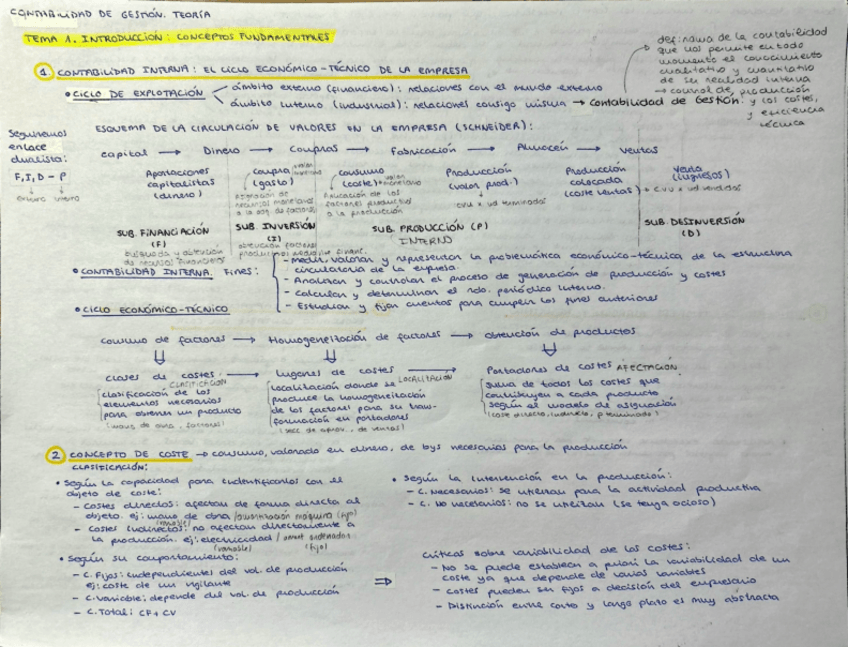 CONTABILIDAD DE GESTIÓN. TEORÍA
TEMA 1. INTRODUCCIÓN: CONCEPTOS FUNDAMENTALES
1. CONTABILIDAD INTERNA: EL CICLO ECONÓMICO-TÉCNICO DE LA EMPRESA
• CICLO DE EXPLOTACIÓN
ámbito externo (financiero): relaciones con el mundo externo
ámbito interno (industrial): relaciones consigo misma → Contabilidad de Gestión:
def: rama de la contabilidad
que nos permite en todo
momento el conocimiento
cualitativo y cuantitativo
de su realidad interna
→ control de producción
y los costes,
y eficiencia
técnica
Seguiremos
enlace
dualista:
F, I, D - P
externo interno
ESQUEMA DE LA CIRCULACIÓN DE VALORES EN LA EMPRESA (SCHNEIDER):
capital → Dinero → Compras → Fabricación → Almacén → Ventas
Aportaciones
capitalistas
(dinero)
compra
(gasto)
consumo
(coste)
Producción
(valor prod.)
Producción
colocada
(coste ventas)
Venta
(ingresos)
cvu x ud terminados
+ cvu x ud vendidas
Aplicación de los
factores productivos
a la producción
SUB. FINANCIACIÓN
(F)
búsqueda y obtención
de recursos financieros
SUB. INVERSIÓN
(I)
obtención factores
productivos mediante financ.
SUB. PRODUCCIÓN (P)
INTERNO
SUB. DESINVERSIÓN
(D)
• CONTABILIDAD INTERNA. Fines:
- Medir, valorar y representar la problemática económico-técnica de la estructura
circulatoria de la empresa.
- Analizar y controlar el proceso de generación de producción y costes
- Calcular y determinar el rdo. periódico interno.
- Estudiar y fijar cuentas para cumplir los fines anteriores
• CICLO ECONÓMICO-TÉCNICO
consumo de factores → Homogeneización de factores → obtención de productos
clases de costes → Lugares de costes → Portadores de costes AFECTACIÓN
CLASIFICACIÓN
clasificación de los
elementos necesarios
para obtener un producto
(mano de obra, factores)
LOCALIZACIÓN
localización donde se
produce la homogeneización
de los factores para su trans-
formación en portadores
(secc de aprov., de ventas)
suma de todos los costes que
contribuyen a cada producto
según el modelo de asignación
(coste directo, indirecto, p. terminado)
2. CONCEPTO DE COSTE → consumo, valorado en dinero, de bys necesarios para la producción
CLASIFICACIÓN:
• Según la capacidad para identificarlos con el
objeto de coste:
- Costes directos: afectan de forma directa al
objeto. ej: mano de obra / amortización máquina (fijo)
(variable)
- Costes indirectos: no afectan directamente a
la producción. ej: electricidad / amort ordenadores
(variable) (fijo)
• Según su comportamiento:
- C. Fijos: independientes del vol. de producción
ej: coste de un vigilante
- C. Variable: depende del vol. de producción
- C. Total: CF + CV
• Según la intervención en la producción:
- C. Necesarios: se utilizan para la actividad productiva
- C. No necesarios: no se utilizan (se tenga ocioso)
⇒
Críticas sobre variabilidad de los costes:
- No se puede establecer a priori la variabilidad de un
coste ya que depende de varias variables
- Costes pueden ser fijos a decisión del empresario
- Distinción entre corto y largo plazo es muy abstracta